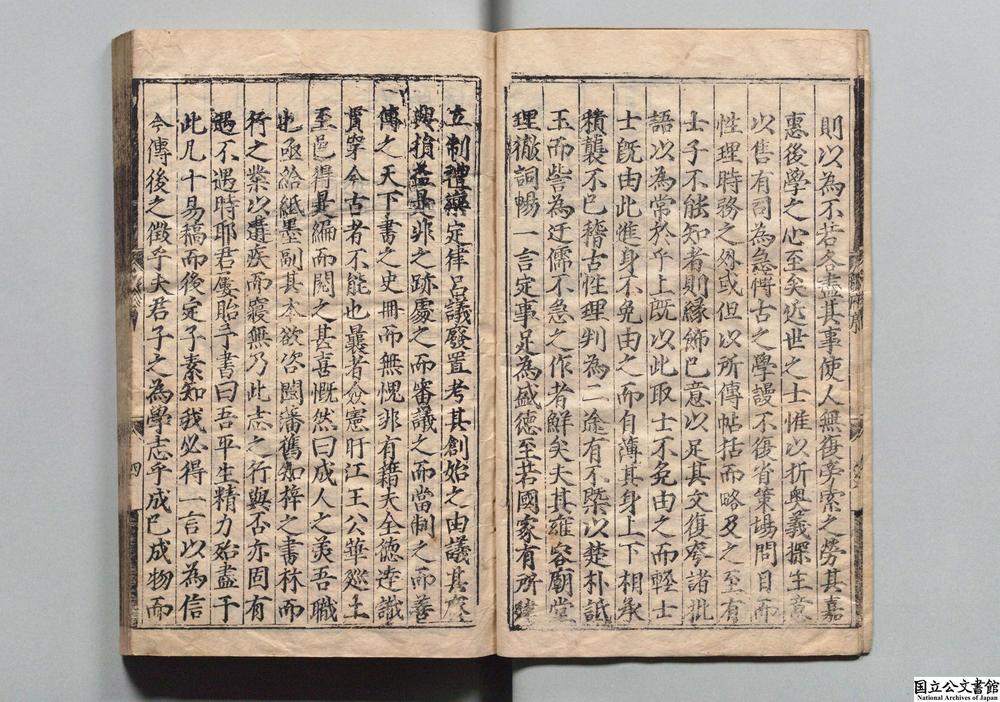 則以為不若冬盡其事使人無復旁索之勞其嘉
惠後學之心至矣近世之士惟以折奥義探生意
以售有司為急博古之學謾不復省策塲問目而
性理時務之外或但以所傳帖括而略及之至有
士子不能知者則縁飾已意以足其文復夸諸批
語以為常於乎上既以此取士不免由之而輕士
士既由此進身不免由之而自薄其身上下相承
積襲不已稽古性理判為二途有不槩以楚朴詆
玉而訾為迂儒不急之作者鮮矣夫其雍容廟堂
理徹詞暢一言定事足為盛德至若國家有所肄
立制禮樂定律吕議發置考其創始之由議其廢
興損益是非之跡處之而審議之而當制之而善
傳之天下書之史冊而無愧非有籍大全徳逹識
貫穿今古者不能也曩者僉憲盱江王公華廵主
至邑得是編而閲之甚喜慨然曰成人之美吾職
也亟給紙墨副其本欲咨閩藩舊知梓之書林而
行之業以遺疾而寢無乃此志之行與否亦固有
遇不遇時耶君屢貽予書曰吾平生精力殆盡于
此凡十易稿而後定子素知我必得一言以為信
今傳後之徴乎夫君子之為學志乎成已成物而
四
国立公文書館
National Archives of Japan